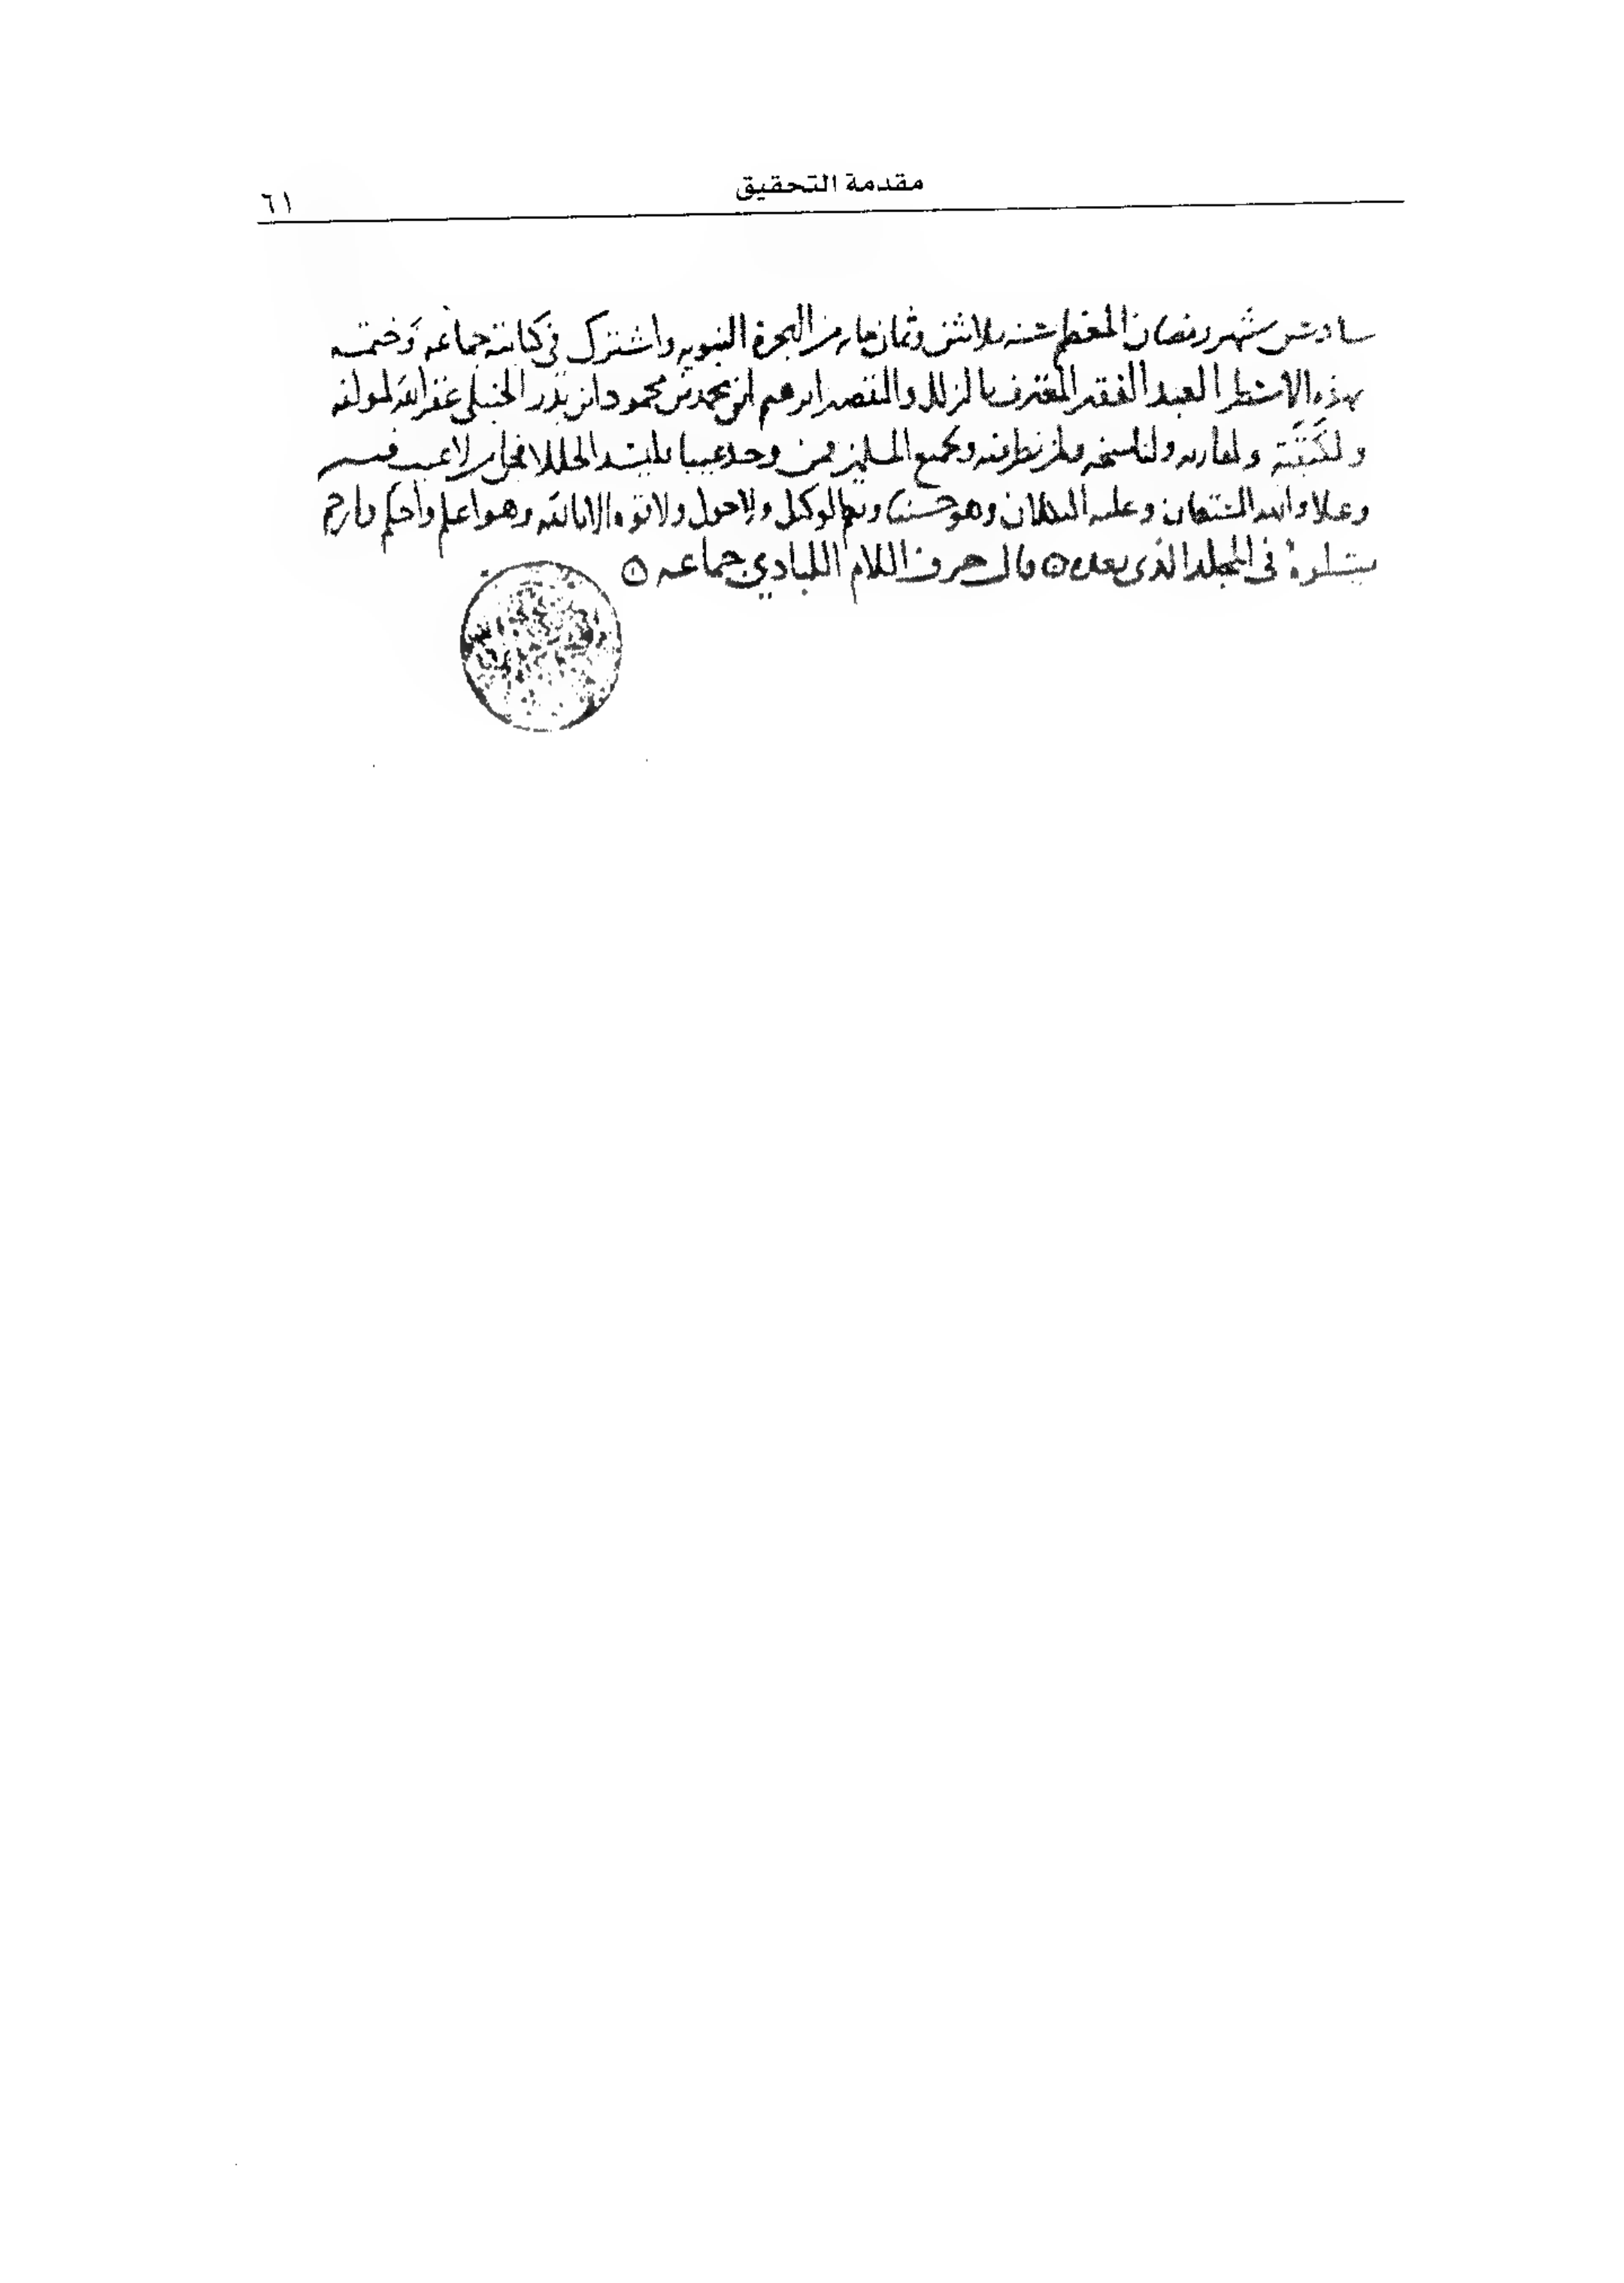 مقدمة التحقيق
٦١
سادس شهر رمضان المعظم سنه ثلاثين وثمان مايه من الهجرة النبويه واشترك في كتابته جماعه وختمه
بهذه الاسطر العبد الفقير المعترف بالزلل والتقصير ابرهيم ابن محمد بن محمود ابن بدر الحنبلي غفر الله لمولفه
ولكتبته ولقاريه ولناسخه ولمن نظر فيه ولجميع المسلمين فمن وجد عيبا فليسد الخللا فجل من لا عيب فيه
وعلا والله المستعان وعليه التكلان وهو حسبنا ونعم الوكيل ولا حول ولا قوه الا بالله وهو اعلم واحكم وارحم
يتلوه في المجلد الذي بعده قال حرف اللام اللبادي جماعه